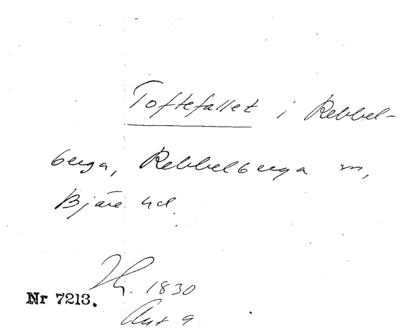 Toftefallet i Rebbel-
berga, Rebbelberga m,
Bjäre hd.
1830
Nr 7213.
Akt 9